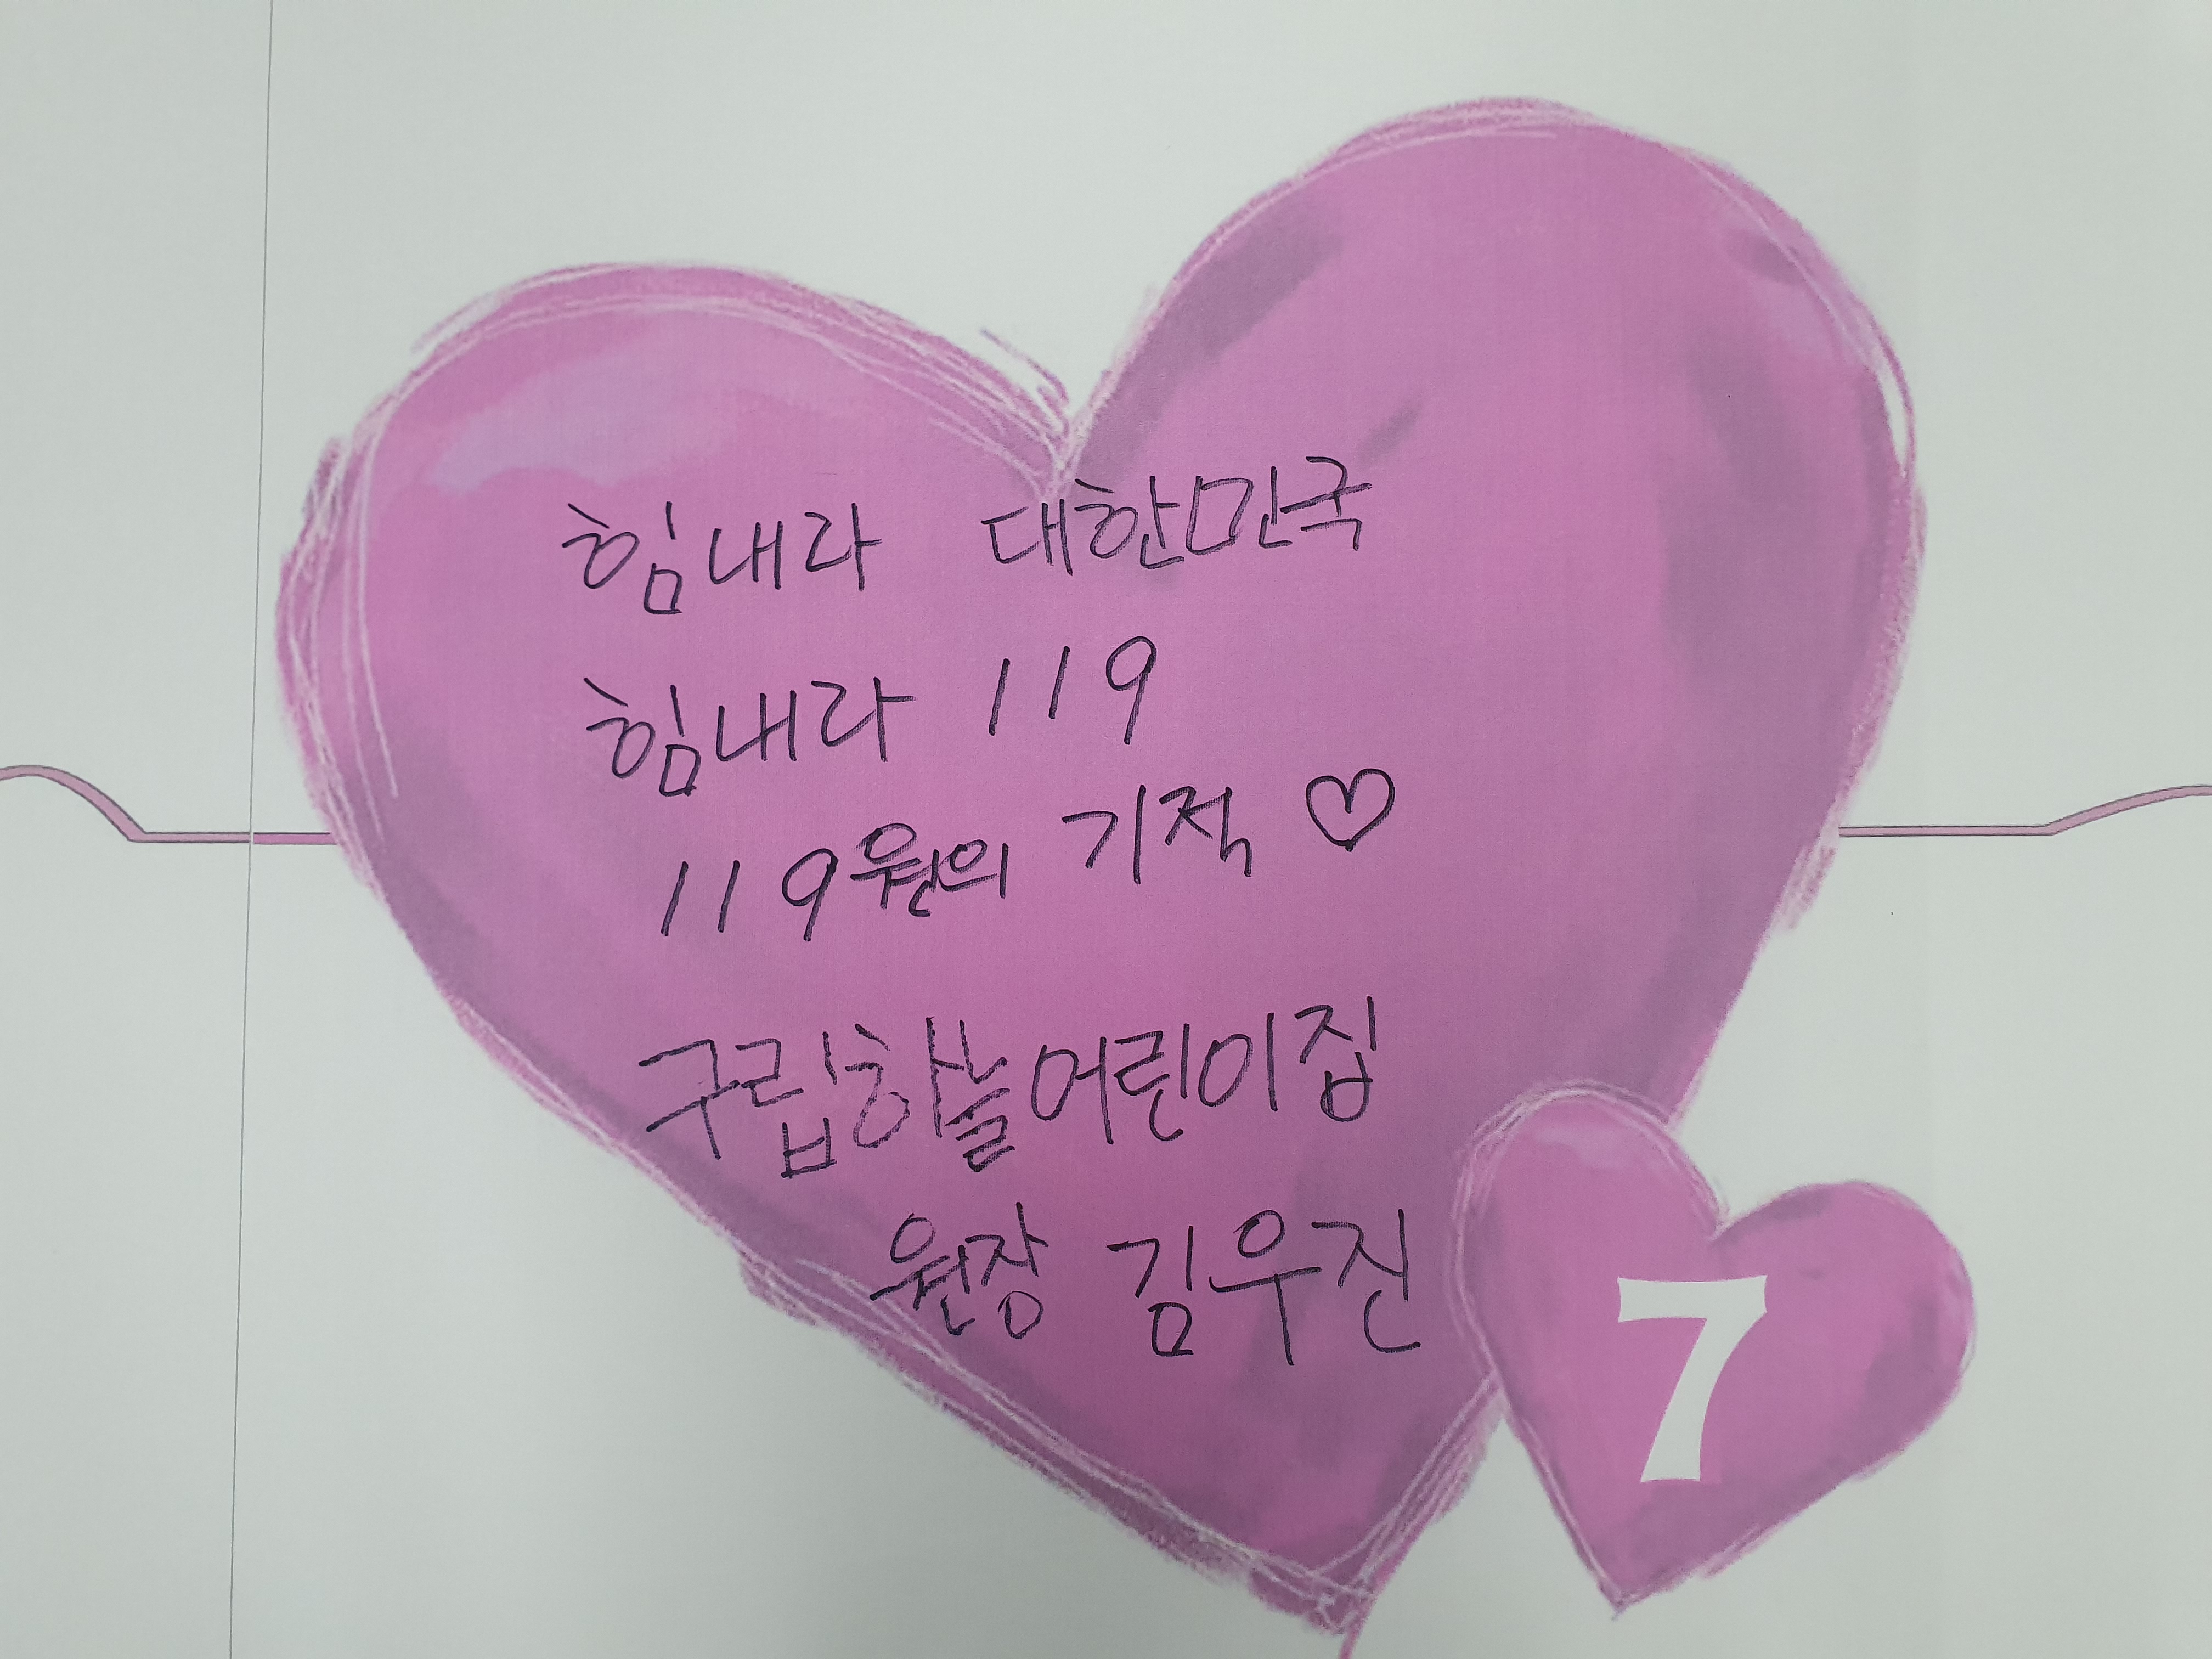 힘내라 대한민국
힘내라 119
119원의 기적 ♡
구립하늘어린이집
원장 김우진
7